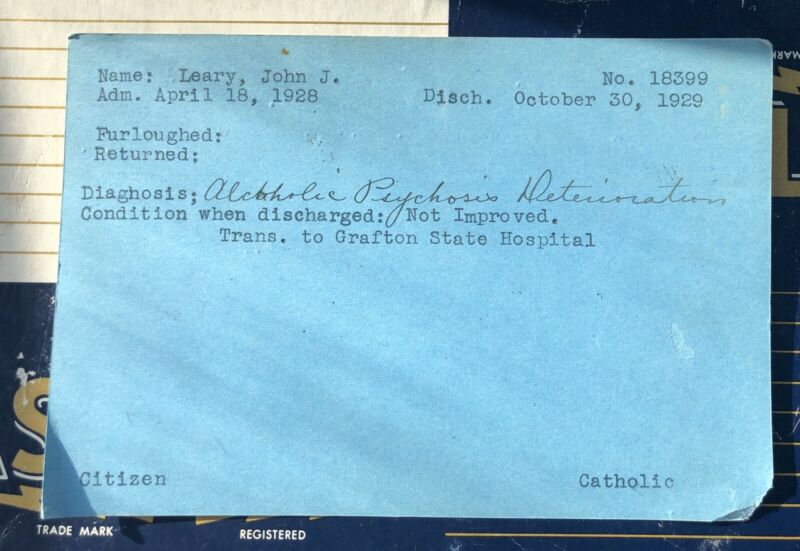 Name: Leary, John J. No. 18399
Adm. April 18, 1928 Disch. October 30, 1929
Furloughed:
Returned:
Diagnosis; Alcoholic Psychosis Deterioration
Condition when discharged: Not Improved.
Trans. to Grafton State Hospital
Citizen Catholic
TRADE MARK REGISTERED